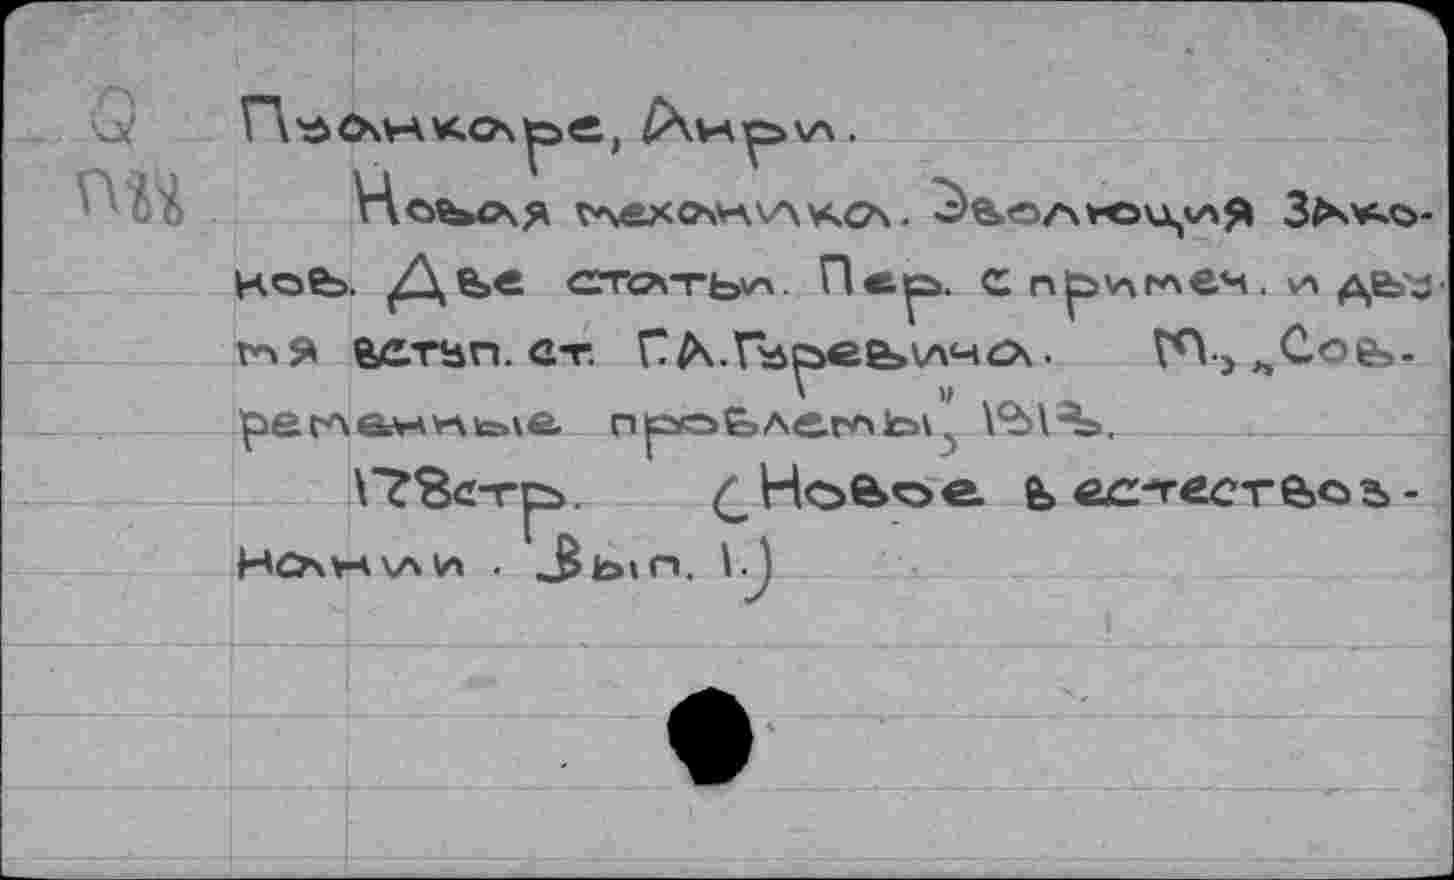 Q Пуанкаре, Анри.
П Новая механика. Эволюция зако-
нов. Две статьи. Пер. с примеч. и двумя
вступ. ст. Г.А.Гуревича. М., „Сов-
ременные проблемы", 1913.
178стр. (Новое в естествоз-
нании. Вып. 1.)